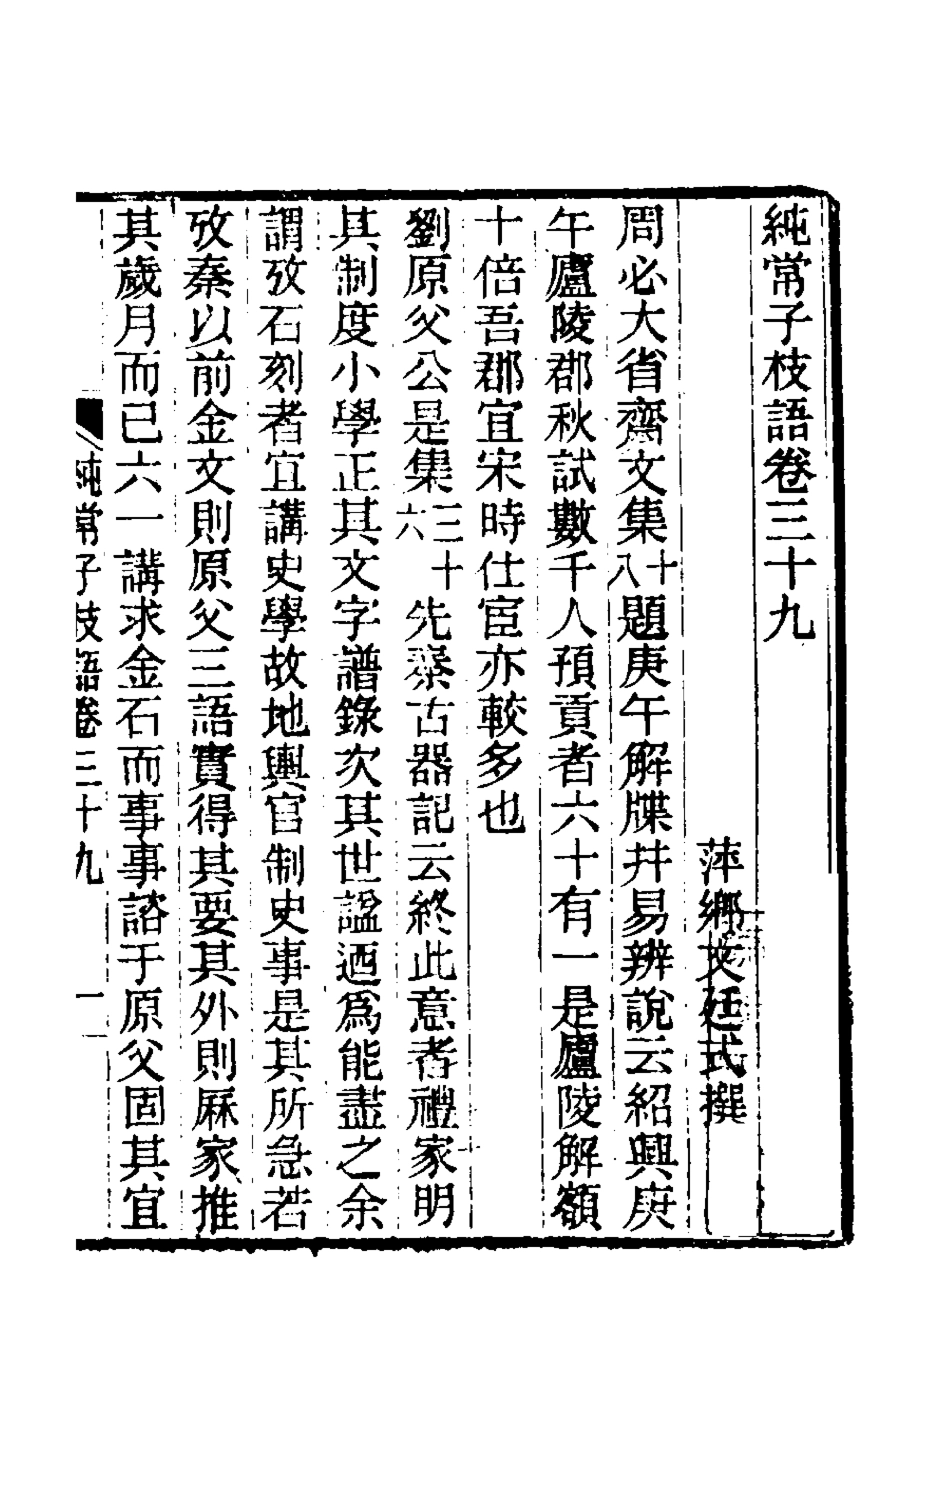 純常子枝語卷三十九
萍鄉文廷式撰
周必大省齋文集十八題庚午解牒幷易辨說云紹興庚
午廬陵郡秋試數千人預貢者六十有一是廬陵解額
十倍吾郡宜宋時仕宦亦較多也
劉原父公是集三十六先秦古器記云終此意者禮家明
其制度小學正其文字譜錄次其世諡迺爲能盡之余
謂攷石刻者宜講史學故地輿官制史事是其所急若
攷秦以前金文則原父三語實得其要其外則厤家推
其歲月而已六一講求金石而事事諮于原父固其宜
純常子枝語卷三十九 一